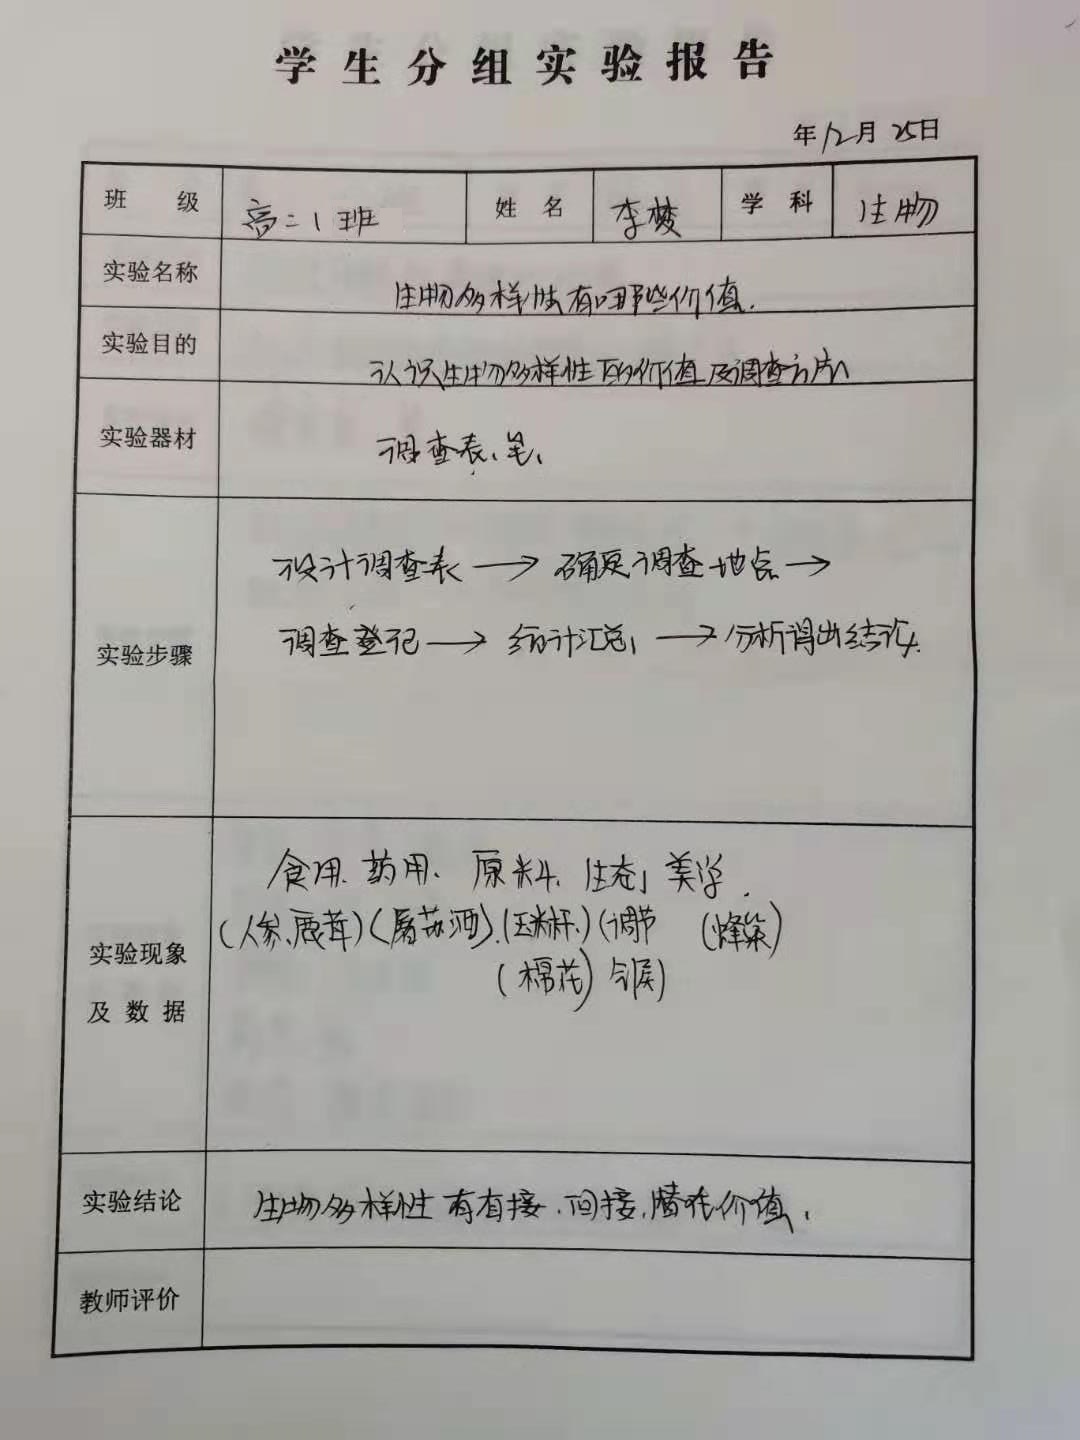 学生分组实验报告
年12月25日
班 级 高二1班 姓 名 李梭 学 科 生物
实验名称 生物多样性有哪些价值.
实验目的 认识生物多样性的价值及调查方法
实验器材 调查表、笔、
设计调查表 → 确定调查地点 →
实验步骤 调查登记 → 统计汇总 → 分析得出结论.
食用、药用、原料、生态、美学.
(人参、鹿茸)(屠苏酒)、(玉米杆、)(调节 (蜂巢)
实验现象 (棉花) 气候)
及 数 据
实验结论 生物多样性有有接、间接、潜在价值、
教师评价